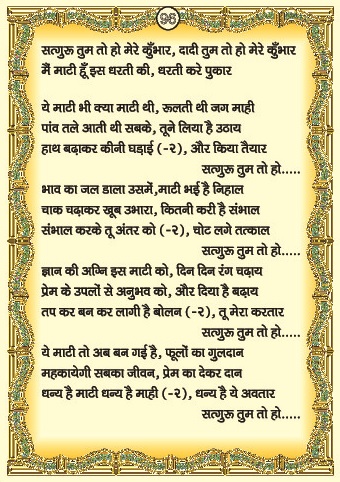 96
सतगुरू तुम तो हो मेरे कुँभार, दादी तुम तो हो मेरे कुँभार
मैं माटी हूँ इस धरती की, धरती करे पुकार
ये माटी भी क्या माटी थी, रूलती थी जग माही
पांव तले आती थी सबके, तूने लिया है उठाय
हाथ बढ़ाकर कीनी घड़ाई (-२), और किया तैयार
सत्गुरू तुम तो हो.....
भाव का जल डाला उसमें,माटी भई है निहाल
चाक चढ़ाकर खूब उभारा, कितनी करी है संभाल
संभाल करके तू अंतर को (-२), चोट लगे तत्काल
सत्गुरू तुम तो हो.....
ज्ञान की अग्नि इस माटी को, दिन दिन रंग चढ़ाय
प्रेम के उपलों से अनुभव को, और दिया है बढ़ाय
तप कर बन कर लागी है बोलन (-२), तू मेरा करतार
सत्गुरू तुम तो हो.....
ये माटी तो अब बन गई है, फूलों का गुलदान
महकायेगी सबका जीवन, प्रेम का देकर दान
धन्य है माटी धन्य है माही (-२), धन्य है ये अवतार
सत्गुरू तुम तो हो.....